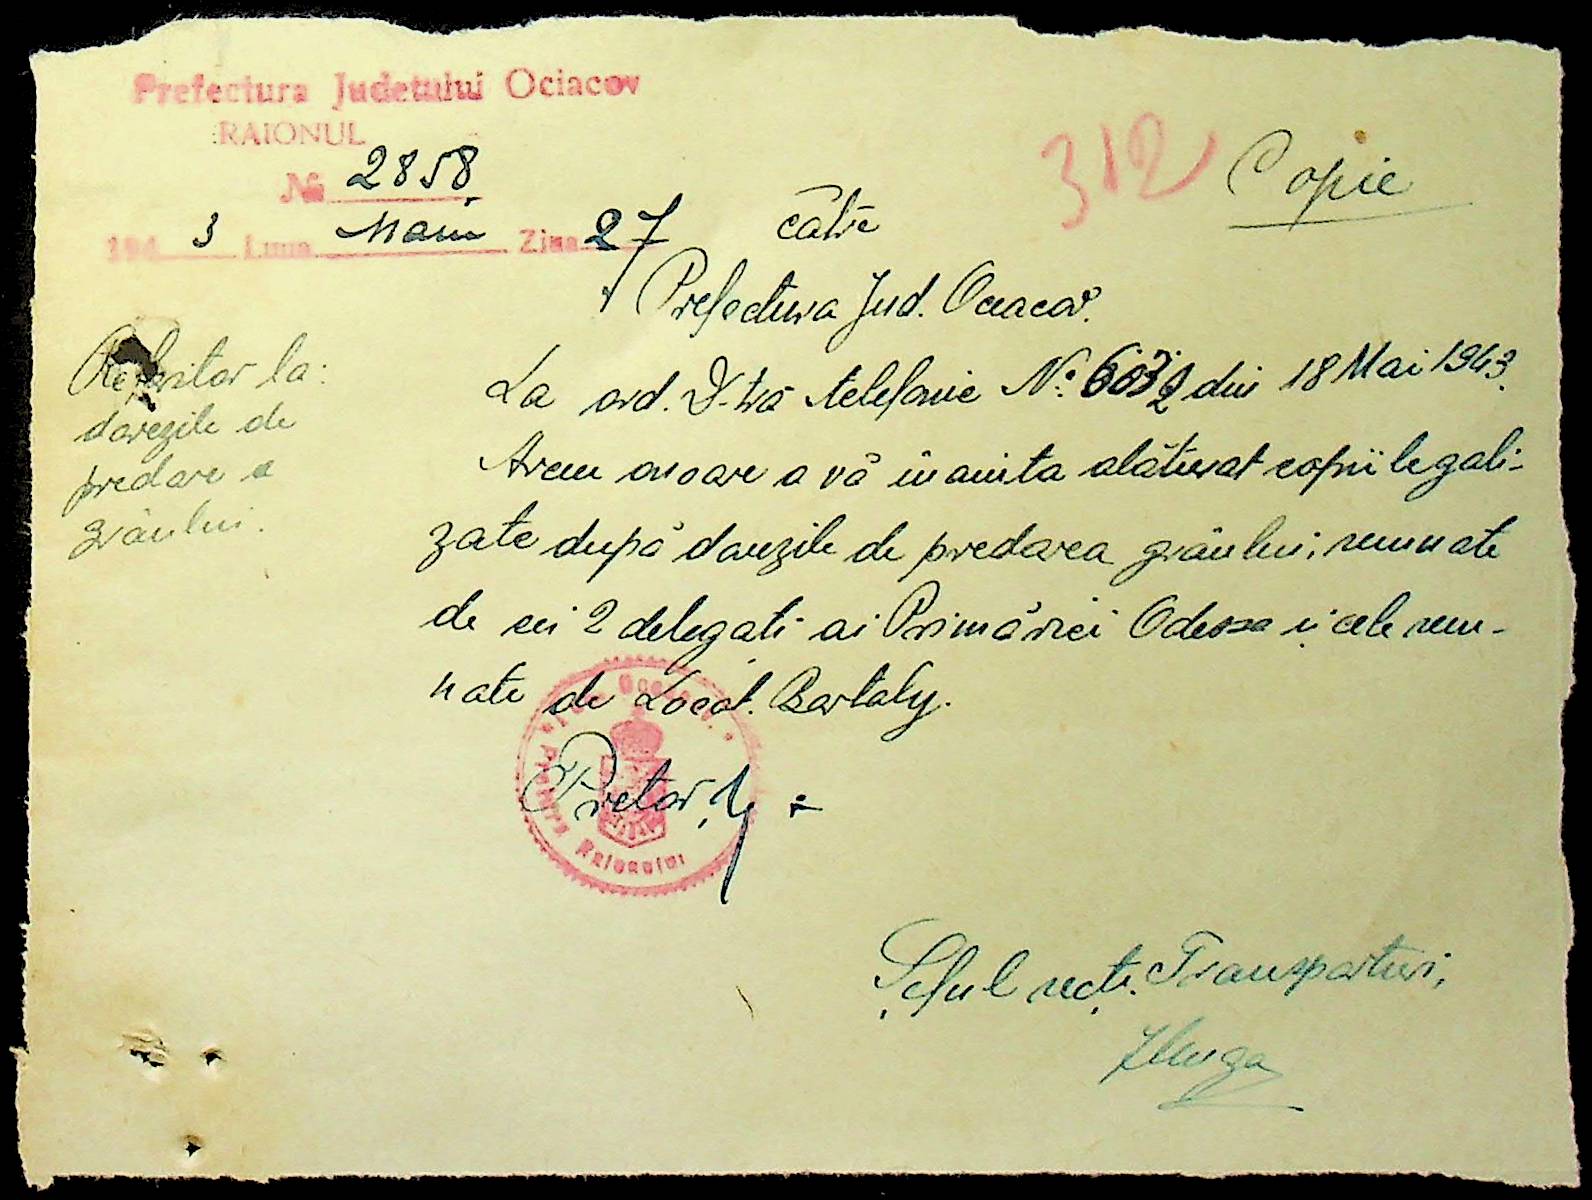 Prefectura Judetului Ociacov
RAIONUL
№ 2858
194 3 Luna Maiu Ziua 27
312
Copie
către
Prefectura Jud. Ociacov.
Referitor la:
dovezile de
predare a
grâului.
La ord. D-tră telefonic No. din 18 Mai 1943.
Avem onoare a vă înainta alăturat copii legali-
zate după dovezile de predarea grâului, semnate
de cei 2 delegati ai Primăriei Odessa și cele sem-
nate de Locot. Bartaly.
Pretor,
Pretura Raionului
Șeful secț. Transporturi,